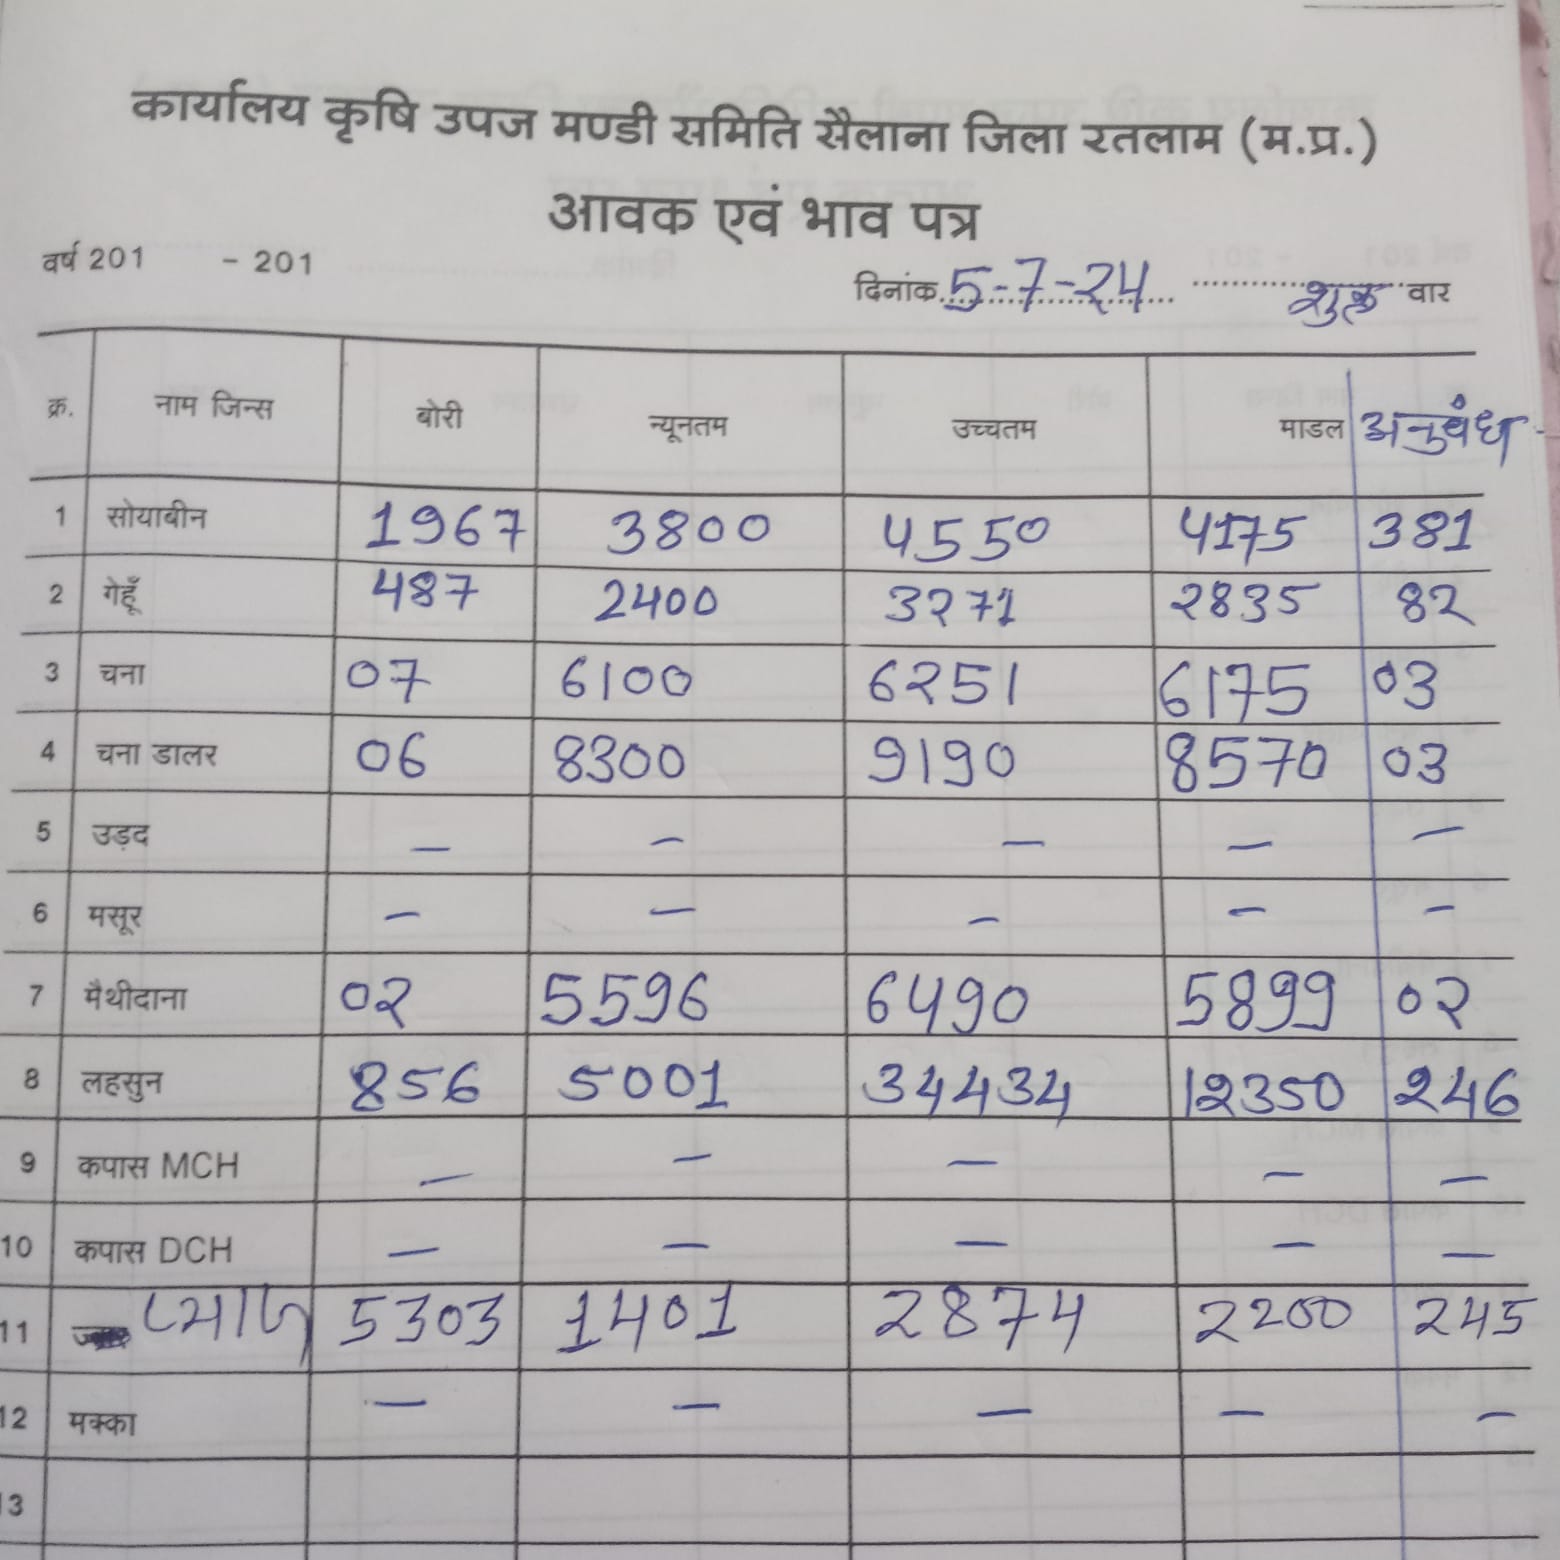 कार्यालय कृषि उपज मण्डी समिति सैलाना जिला रतलाम (म.प्र.)
आवक एवं भाव पत्र
वर्ष 201 - 201 दिनांक 5-7-24 शुक्र वार
क्र. नाम जिन्स बोरी न्यूनतम उच्चतम माडल अनुबंध
1 सोयाबीन 1967 3800 4550 4175 381
2 गेहूँ 487 2400 3271 2835 82
3 चना 07 6100 6251 6175 03
4 चना डालर 06 8300 9190 8570 03
5 उड़द – – – – –
6 मसूर – – – – –
7 मैथीदाना 02 5596 6490 5899 02
8 लहसुन 856 5001 34434 12350 246
9 कपास MCH – – – – –
10 कपास DCH – – – – –
11 प्याज 5303 1401 2874 2200 245
12 मक्का – – – – –
13